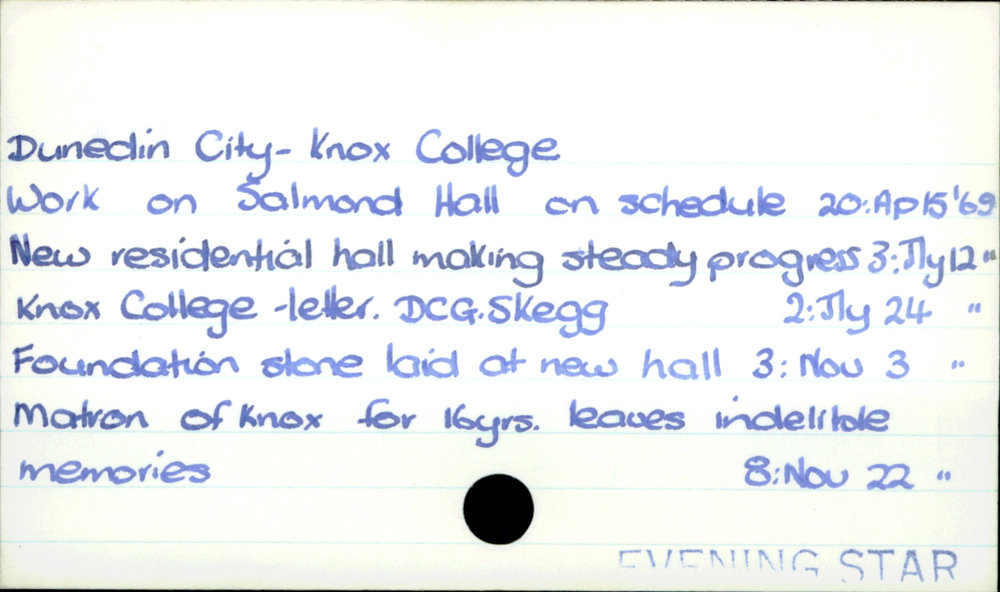 Dunedin City- Knox College
Work on Salmond Hall on schedule 20:Ap15'69
New residential hall making steady progress 3:Jly12"
Knox College -letter. DCG.Skegg 2:Jly 24 "
Foundation stone laid at new hall 3: Nov 3 "
Matron of Knox for 16yrs. leaves indelible
memories 8:Nov 22 "
EVENING STAR